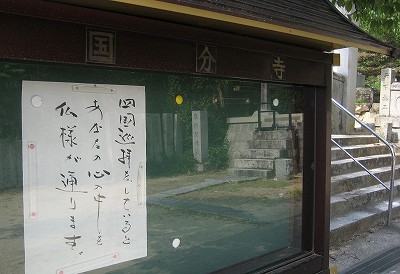 国分寺
四国巡拝をしていると
あなたの心の中を
仏様が通ります。